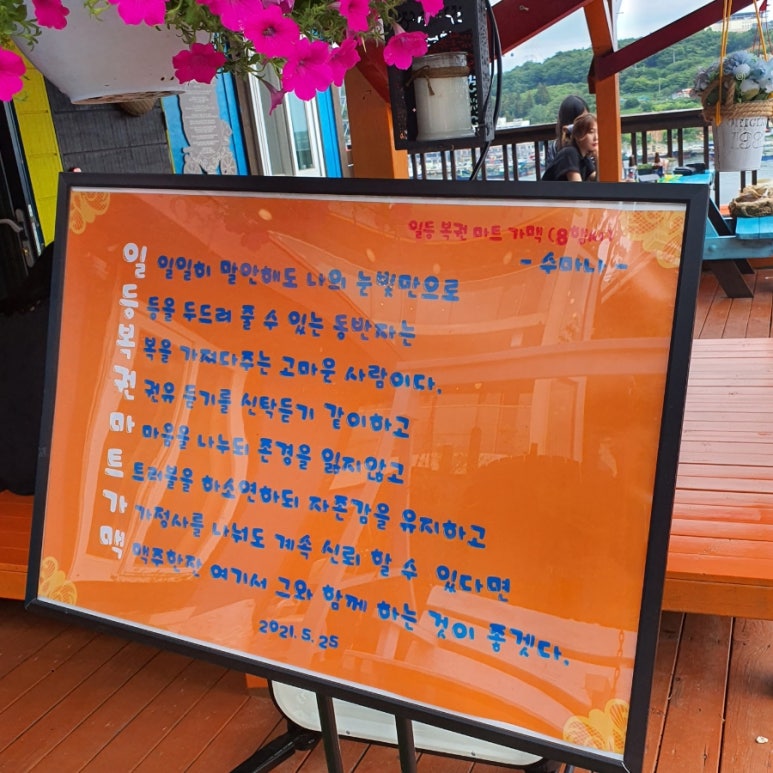 일등 복권 마트 가맥 (8행시)
- 수마니 -
일 일일히 말안해도 나의 눈빛만으로
등 등을 두드려 줄 수 있는 동반자는
복 복을 가져다주는 고마운 사람이다.
권 권유 듣기를 신탁듣기 같이하고
마 마음을 나누되 존경을 잃지않고
트 트러블을 하소연하되 자존감을 유지하고
가 가정사를 나눠도 계속 신뢰 할 수 있다면
맥 맥주한잔 여기서 그와 함께 하는 것이 좋겠다.
2021. 5. 25